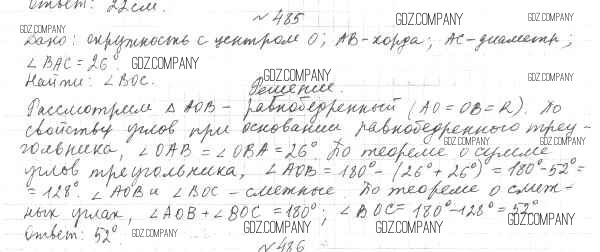 Ответ: 22см.
№ 485
GDZ.COMPANY GDZ.COMPANY
GDZ.COMPANY
Дано: окружность с центром O; AB-хорда; AC-диаметр;
∠BAC = 26° GDZ.COMPANY
Найти: ∠BOC. GDZ.COMPANY GDZ.COMPANY
Решение.
Рассмотрим △ AOB - равнобедренный (AO = OB = R). По
свойству углов при основании равнобедренного треу-
гольника, ∠OAB = ∠OBA = 26°. По теореме о сумме
GDZ.COMPANY GDZ.COMPANY
углов треугольника, ∠AOB = 180° - (26° + 26°) = 180° - 52° =
= 128°. ∠AOB и ∠BOC - смежные. По теореме о смеж-
ных углах, ∠AOB + ∠BOC = 180°; ∠BOC = 180° - 128° = 52°
Ответ: 52° GDZ.COMPANY GDZ.COMPANY GDZ.COMPANY GDZ.COMPANY
№ 486